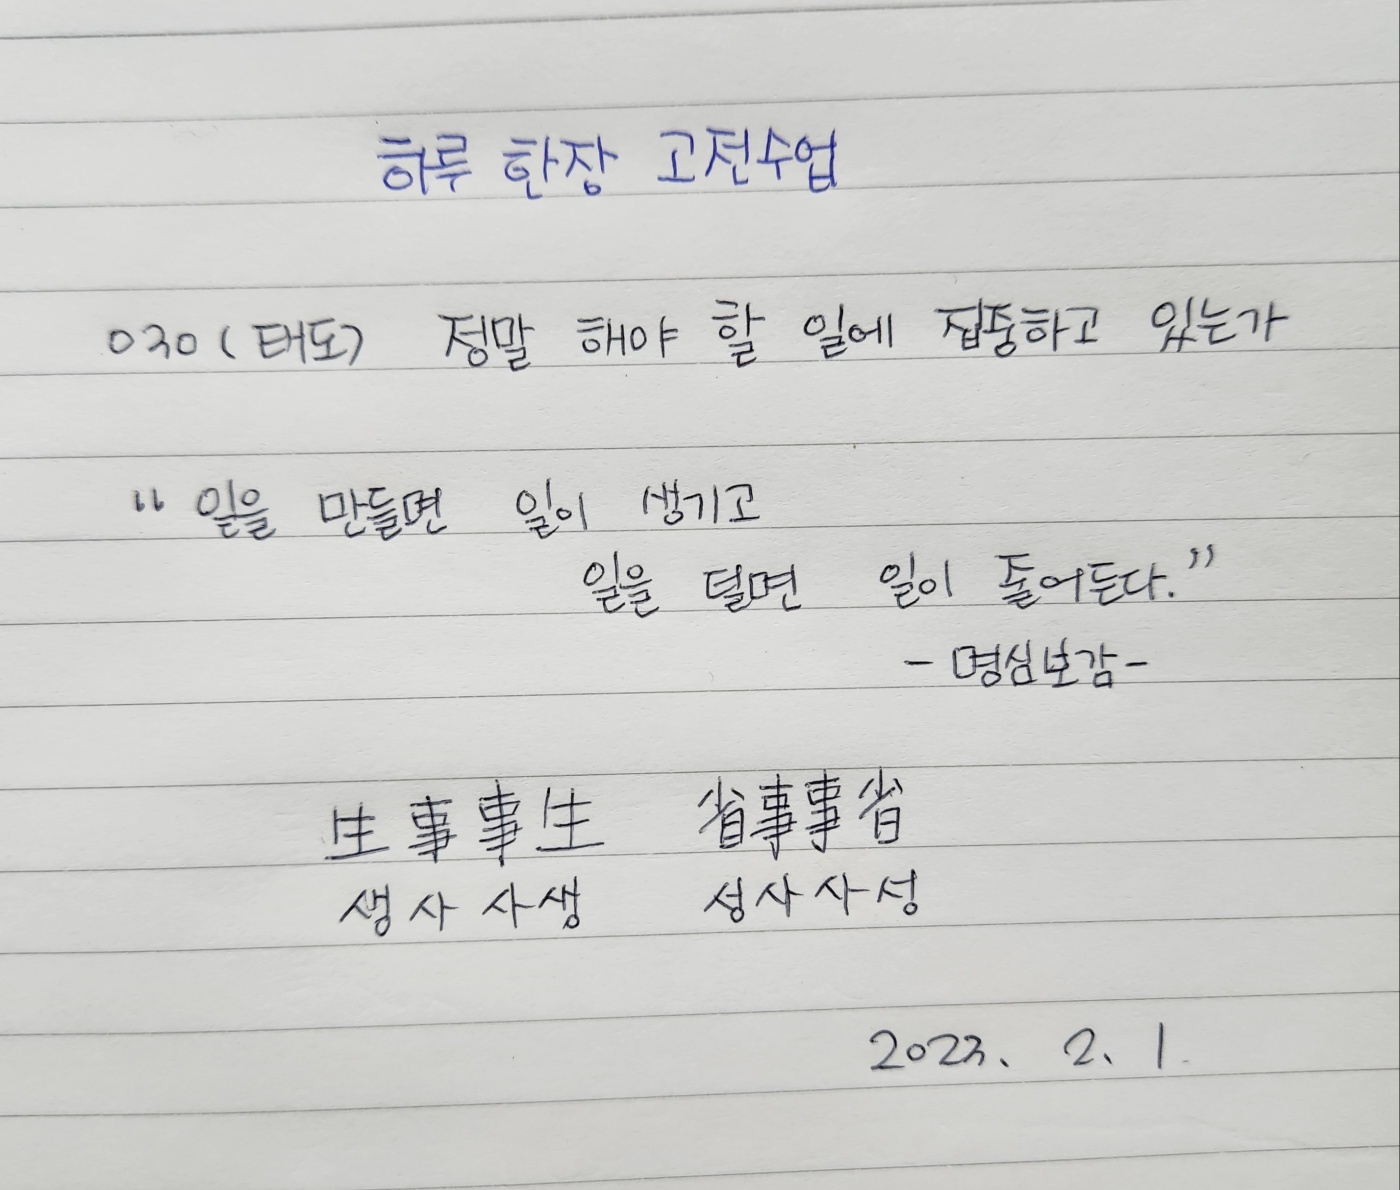 하루 한장 고전수업
030 (태도) 정말 해야 할 일에 집중하고 있는가
"일을 만들면 일이 생기고
일을 덜면 일이 줄어든다."
- 명심보감 -
生事事生 省事事省
생사사생 성사사성
2023. 2. 1.